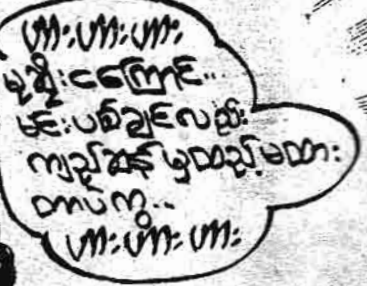 ဟား ဟား ဟား
မုဆိုး ငကြောင်...
မင်း ပစ်ချင်လည်း
ကျည်ဆန် မှထည့်မထား
တာပဲကွ...
ဟား ဟား ဟား